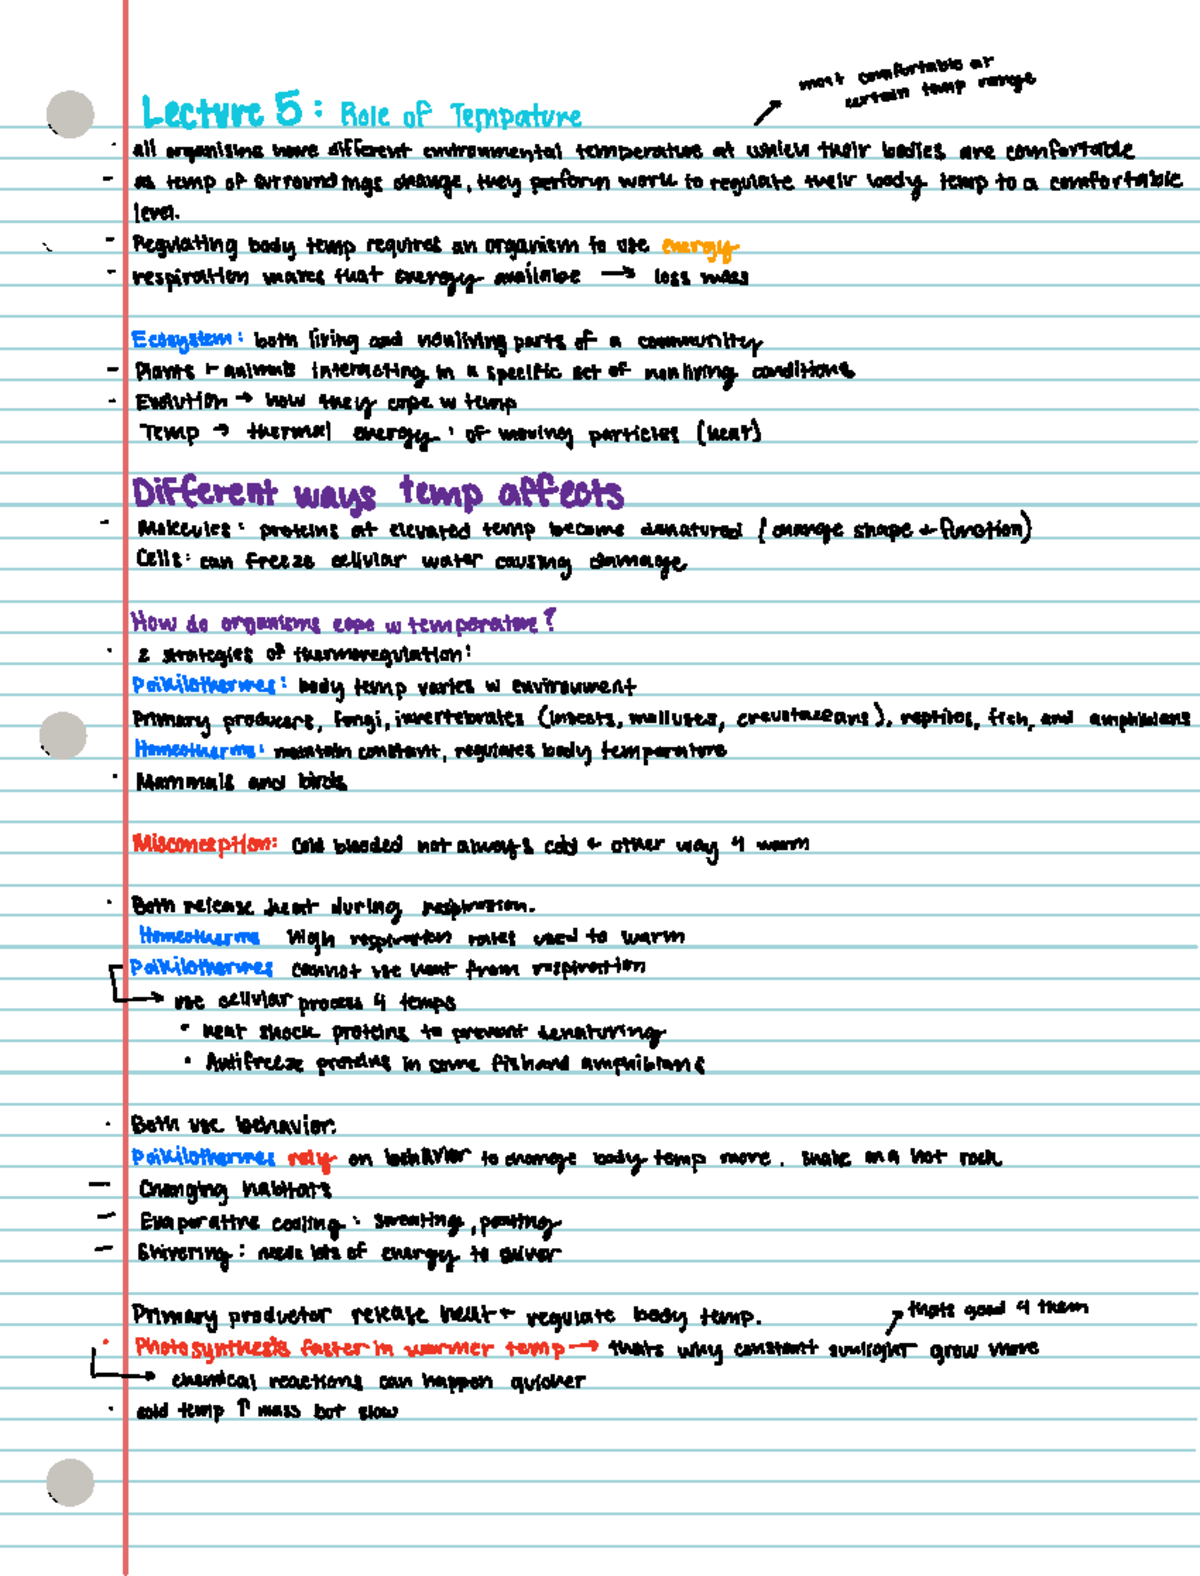 most comfortable at
certain temp range
Lecture 5: Role of Tempature
· all organisms have different environmental temperature at which their bodies are comfortable
- as temp of surroundings change, they perform work to regulate their body temp to a comfortable
level.
- Regulating body temp requires an organism to use energy
- respiration makes that energy available → loss mass
Ecosystem: both living and nonliving parts of a community
- Plants + animals interacting in a specific set of nonliving conditions
- Evolution → how they cope w temp
Temp → thermal energy : of moving particles (heat)
Different ways temp affects
- Molecules: proteins at elevated temp become denatured (change shape + function)
Cells: can freeze cellular water causing damage
How do organisms cope w temperature?
· 2 strategies of thermoregulation:
Poikilothermes: body temp varies w environment
Primary producers, fungi, invertebrates (insects, molluses, crevstaceans), reptiles, fish, and amphibians
Homeotherms: maintain constant, regulates body temperature
· Mammals and birds
Misconception: Cold blooded not always cold + other way 4 warm
· Both release heat during respiration.
Homeotherms High respiration rates used to warm
Poikilothermes cannot use heat from respiration
→ use cellular process 4 temps
· heat shock proteins to prevent denaturing
· Antifreeze proteins in some fish and amphibians
· Both use behavior:
Poikilothermes rely on behavior to change body temp more. Snake on a hot rock
- Changing habitats
- Evaporative cooling: sweating, panting
- Shivering: needs lots of energy to shiver
Primary productor release heat + regulate body temp.
thats good 4 them
· Photosynthesis faster in warmer temp → thats why constant sunlight grow more
→ chemical reactions can happen quicker
· cold temp ↑ mass but slow